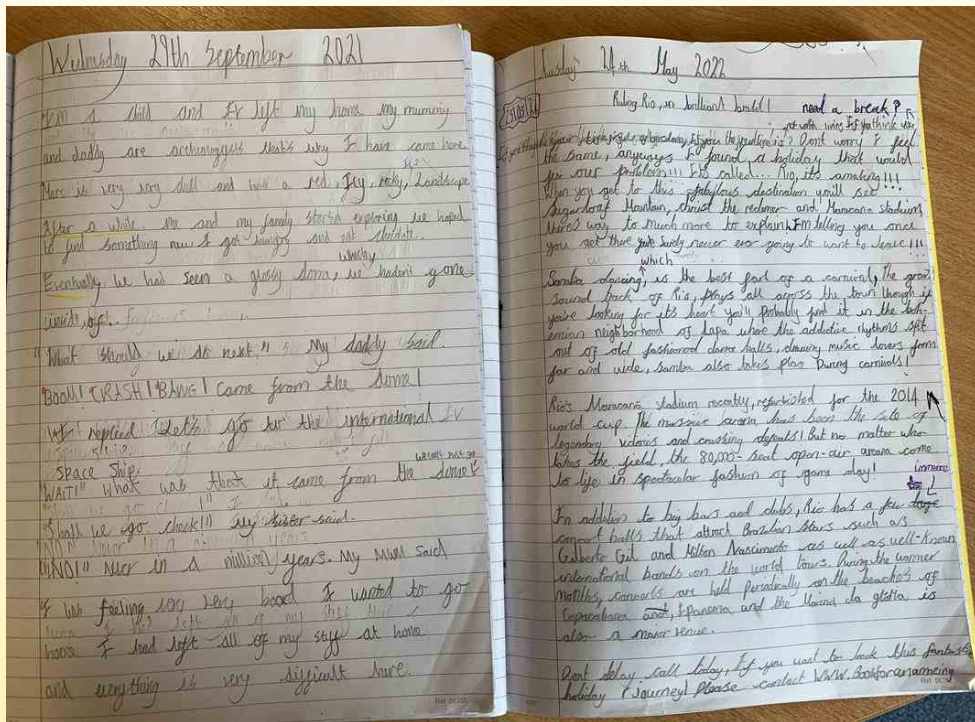 Wednesday 29th September 2021
I'm a child and I'v left my home my mummy
and daddy are archeoligists that's why I have come here.
Mars is very very dull and has a red, Icy, rocky, Landscape
After a while Me and my family started exploring we hoped
to find something new I got hungry and eat
which
Eventually, we had seen a glossy dome, we hadent gone
inside, of..
"What should we do next," my daddy said.
BOOM! CRASH! BANG! Came from the dome!
I replied Let's go to the international
Space Ship.
we can't just go
"WAIT!" what was that it came from the dome
Shall we go check!" my sister said.
"NO!" Never in a million years. My Mum said
I was feeling very very bored I wanted to go
home I had left all of my stuff at home
and everything is very difficult here.
Tuesday 24th May 2022
Ruling Rio, in brilliant brazil! need a break?
got with living If you think
Dont worry I feel
the same, anyways I found a holiday that would
fix our problem!!! It's called... Rio, it's amazing!!!
When you get to this fabulous destination you'll see
Sugarloaf Mountain, christ the redemer and Maracana stadium,
there's way to much more to explain, I'm telling you once
you get there you surely never ever going to want to leave!!!
which
Samba dancing, is the best part of a carnical, The great
sound back of Rio, plays all across the town though if
you're looking for it's heart you'll probably find it in the boh-
emian neighborhood of Lapa whare the addictive rhythms spit
out of old fashioned dance halls, drawing music lovers from
far and wide, samba also takes place During carnivals!
Rio's Maracanã stadium recently, refurbished for the 2014
world cup. The massive arena has been the site of
legendary victories and crushing defeats! But no matter who
takes the field, the 80,000-seat open-air areana come
to life in spectacular fashion of game day!
immence
In addition to big bars and clubs, Rio has a few large
concert halls that attract Brazilian stars such as
Gilberto Gil and Milton Nascimento as well as well-known
international bands on the world tours. During the warmer
months, concerts are held periodically on the beaches of
Copacabana and, Ipanema, and the Marina da glória is
also a major venue.
Dont delay call today, If you want to book this fantastic
holiday journey! Please contact WWW.Bookforanamazing